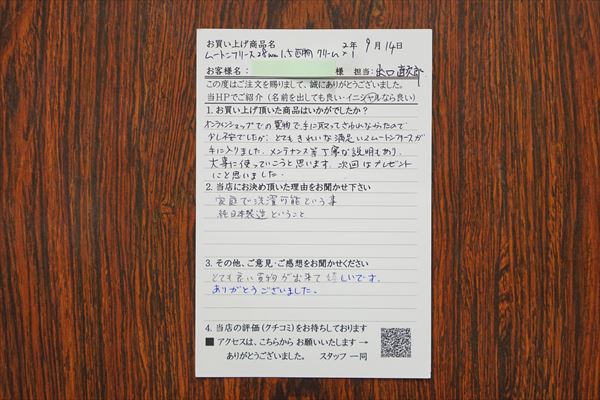 お買い上げ商品名 2年 9月14日
ムートンフリース 28mm 1.5匹物 クリーム × 1
お客様名： 様 担当：出口
この度はご注文を賜りまして、誠にありがとうございました。
当HPでご紹介 (名前を出しても良い・イニシャルなら良い)
1. お買い上げ頂いた商品はいかがでしたか？
オンラインショップでの買物で手に取ってさわれなかったので
少し不安でしたが、とてもきれいな満足いくムートンフリースが
手に入りました。メンテナンス等丁寧な説明もあり、
大事に使っていこうと思います。次回はプレゼント
にと思いました。
2. 当店にお決め頂いた理由をお聞かせ下さい
家庭で洗濯可能という事
純日本製造ということ
3. その他、ご意見・ご感想をお聞かせください
とても良い買物が出来て嬉しいです。
ありがとうございました。
4. 当店の評価(クチコミ)をお待ちしております
■ アクセスは、こちらから お願いいたします →
ありがとうございました。 スタッフ 一同